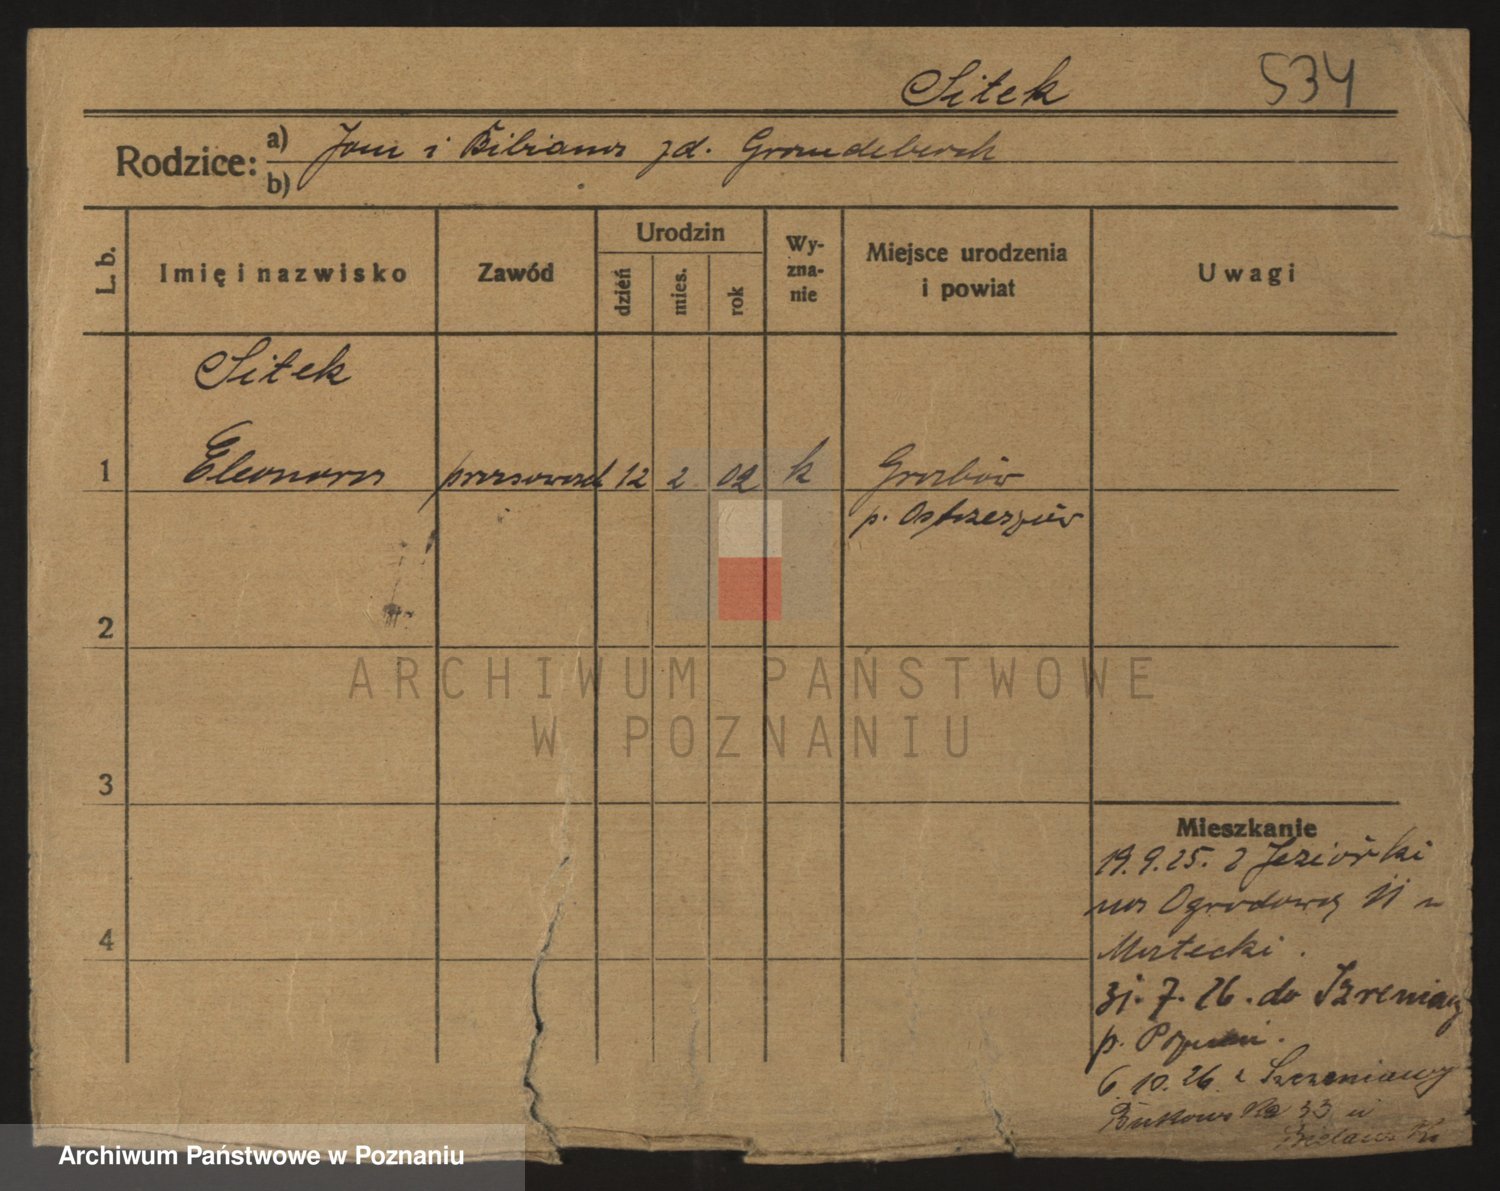 Sitek 534
Rodzice: a) Jan i Bibiana zd. Grandeberek
b)
L. b. Imię i nazwisko Zawód Urodzin dzień mies. rok Wyznanie Miejsce urodzenia i powiat Uwagi
Sitek
1 Eleonora 12 2 02 k Grabów
p. Ostrzeszów
2
3
4
Mieszkanie
19.9.25. z Jeziórki
na Ogrodową 11 u
Matecki.
31.7.26. do
p.
6.10.26 z
Bukowska 33 u
ARCHIWUM PAŃSTWOWE
W POZNANIU
Archiwum Państwowe w Poznaniu